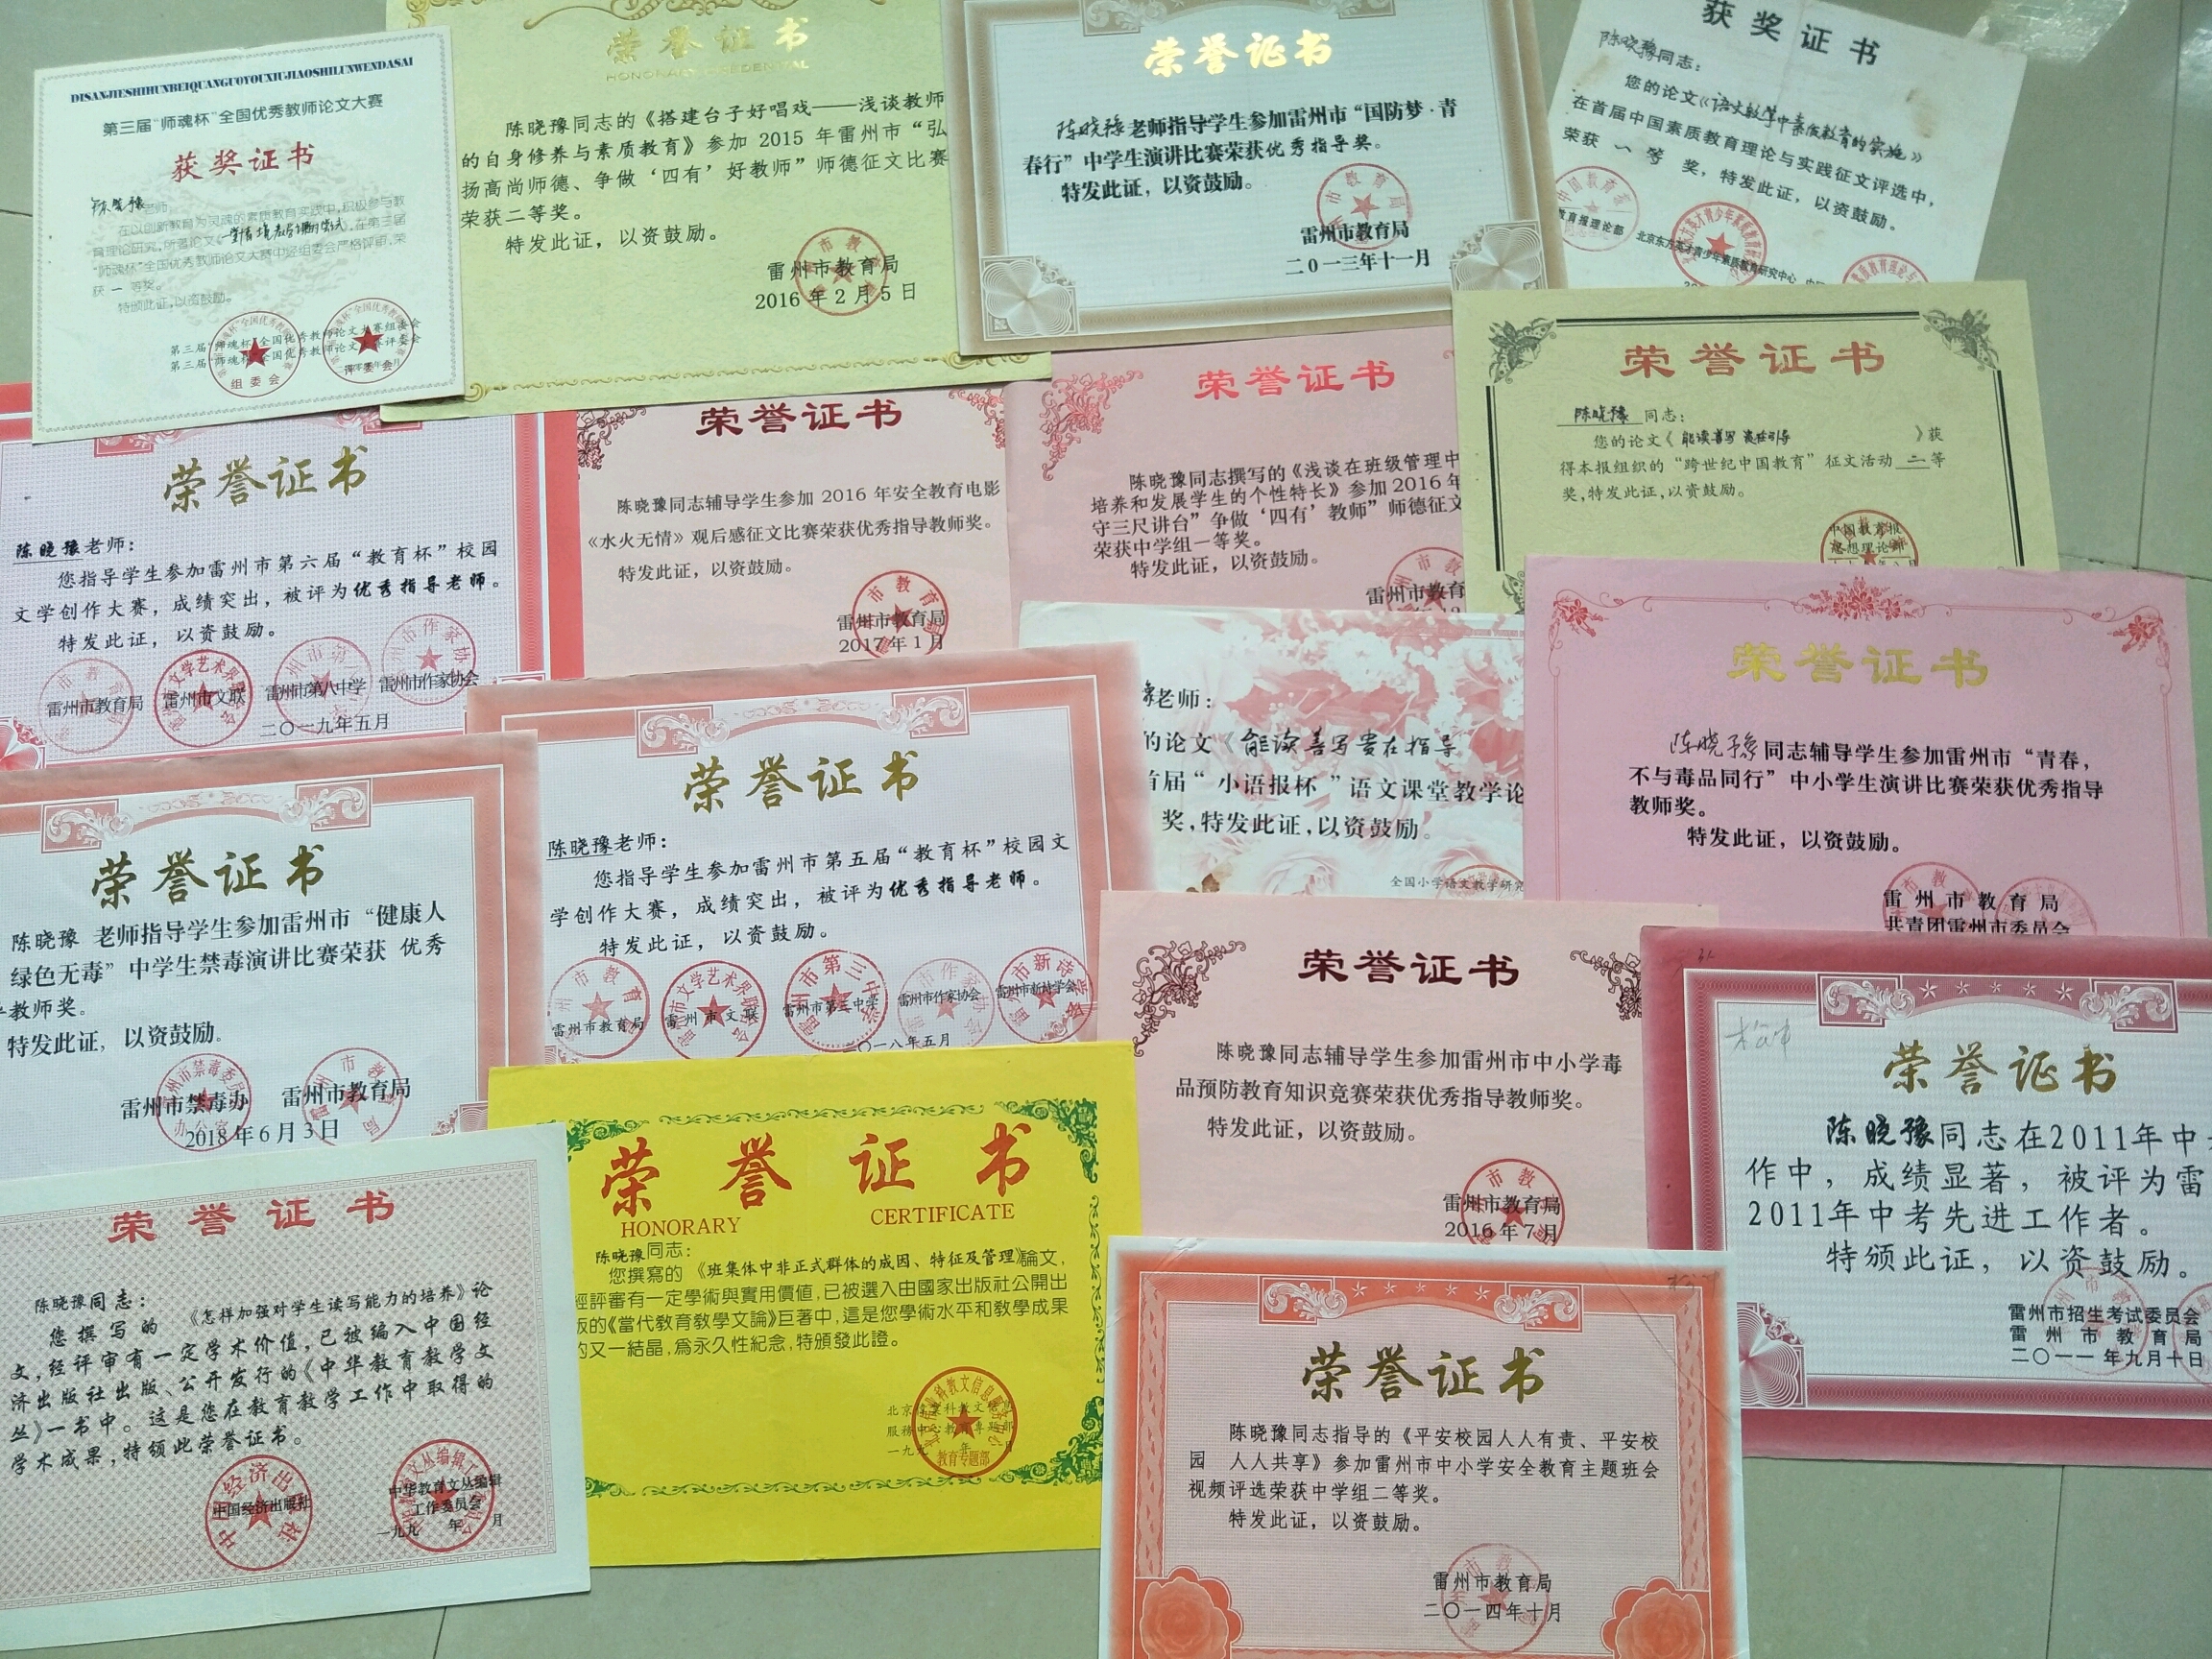 DISANJIESHIHUNBEIQUANGUOYOUXIUJIAOSHILUNWENDASAI
第三届“师魂杯”全国优秀教师论文大赛
获奖证书
陈晓豫老师
在以创新教育为灵魂的素质教育实践中,积极参与教
育理论研究,所著论文《
》,在第三届
“师魂杯”全国优秀教师论文大赛中经组委会严格评审,荣
获一等奖。
特颁此证,以资鼓励。
第三届“师魂杯”全国优秀教师论文大赛组委会
第三届“师魂杯”全国优秀教师论文大赛评委会
组委会
评委会
荣誉证书
HONORARY CREDENTIAL
陈晓豫同志的《搭建台子好唱戏——浅谈教师
的自身修养与素质教育》参加 2015 年雷州市“弘
扬高尚师德、争做‘四有’好教师”师德征文比赛
荣获二等奖。
特发此证，以资鼓励。
雷州市教育局
2016 年 2 月 5 日
荣誉证书
陈晓豫老师指导学生参加雷州市“国防梦·青
春行”中学生演讲比赛荣获优秀指导奖。
特发此证，以资鼓励。
雷州市教育局
二0一三年十一月
获奖证书
陈晓豫同志：
您的论文《语文教学中素质教育的实施》
在首届中国素质教育理论与实践征文评选中，
荣获 一 等 奖，特发此证，以资鼓励。
教育报理论部
北京东方英才青少年素质教育研究中心
荣誉证书
陈晓豫老师：
您指导学生参加雷州市第六届“教育杯”校园
文学创作大赛，成绩突出，被评为优秀指导老师。
特发此证，以资鼓励。
雷州市教育局 雷州市文联 雷州市第八中学 雷州市作家协会
二〇一九年五月
荣誉证书
陈晓豫同志辅导学生参加 2016 年安全教育电影
《水火无情》观后感征文比赛荣获优秀指导教师奖。
特发此证，以资鼓励。
雷州市教育局
2017 年 1 月
荣誉证书
陈晓豫同志撰写的《浅谈在班级管理中
培养和发展学生的个性特长》参加 2016 年
守三尺讲台”争做‘四有’教师”师德征文
荣获中学组一等奖。
特发此证，以资鼓励。
雷州市教育
荣誉证书
陈晓豫 同志：
您的论文《能读善写 贵在引导》获
得本报组织的“跨世纪中国教育”征文活动 二 等
奖,特发此证,以资鼓励。
中国教育报
思想理论部
老师：
的论文《能读善写贵在指导
首届“小语报杯”语文课堂教学论
奖,特发此证,以资鼓励。
全国小学语文教学研究
荣誉证书
陈晓豫同志辅导学生参加雷州市“青春，
不与毒品同行”中小学生演讲比赛荣获优秀指导
教师奖。
特发此证，以资鼓励。
雷州市教育局
共青团雷州市委员会
荣誉证书
陈晓豫 老师指导学生参加雷州市“健康人
绿色无毒”中学生禁毒演讲比赛荣获 优秀
教师奖。
特发此证，以资鼓励。
雷州市禁毒办 雷州市教育局
2018 年 6 月 3 日
荣誉证书
陈晓豫老师：
您指导学生参加雷州市第五届“教育杯”校园文
学创作大赛，成绩突出，被评为优秀指导老师。
特发此证，以资鼓励。
雷州市教育局 雷州市文联 雷州市第三中学 雷州市作家协会 雷州市新诗学会
二〇一八年五月
荣誉证书
陈晓豫同志辅导学生参加雷州市中小学毒
品预防教育知识竞赛荣获优秀指导教师奖。
特发此证，以资鼓励。
雷州市教育局
2016 年 7 月
荣誉证书
陈晓豫同志在2011年中
作中，成绩显著，被评为雷
2011年中考先进工作者。
特颁此证，以资鼓励。
雷州市招生考试委员会
雷州市教育局
二〇一一年九月十日
荣誉证书
陈晓豫同志：
您撰写的《怎样加强对学生读写能力的培养》论
文,经评审有一定学术价值,已被编入中国经
济出版社出版、公开发行的《中华教育教学文
丛》一书中。这是您在教育教学工作中取得的
学术成果,特颁此荣誉证书。
中国经济出版社
中华教育文丛编辑
工作委员会
一九九 年 月
荣誉证书
HONORARY CERTIFICATE
陈晓豫同志：
您撰寫的《班集体中非正式群体的成因、特征及管理》論文,
經評審有一定學術與實用價值,已被選入由國家出版社公開出
版的《當代教育教學文論》巨著中,這是您學術水平和教學成果
的又一結晶,爲永久性紀念,特頒發此證。
教育专题部
荣誉证书
陈晓豫同志指导的《平安校园人人有责、平安校
园 人人共享》参加雷州市中小学安全教育主题班会
视频评选荣获中学组二等奖。
特发此证，以资鼓励。
雷州市教育局
二〇一四年十月